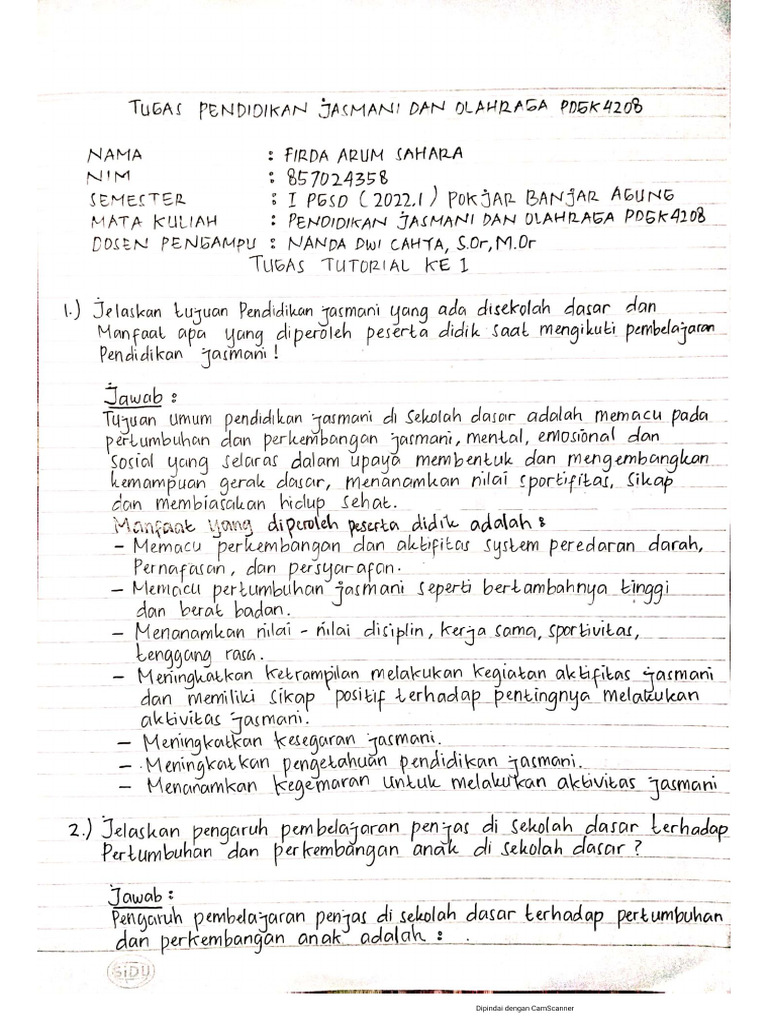 TUGAS PENDIDIKAN JASMANI DAN OLAHRAGA PDGK4208
NAMA : FIRDA ARUM SAHARA
NIM : 857024358
SEMESTER : I PGSD (2022.1) POKJAR BANJAR AGUNG
MATA KULIAH : PENDIDIKAN JASMANI DAN OLAHRAGA PDGK4208
DOSEN PENGAMPU : NANDA DWI CAHYA, S.Or, M.Or
TUGAS TUTORIAL KE 1
1.) Jelaskan tujuan Pendidikan jasmani yang ada disekolah dasar dan
Manfaat apa yang diperoleh peserta didik saat mengikuti pembelajaran
Pendidikan jasmani!
Jawab :
Tujuan umum pendidikan jasmani di sekolah dasar adalah memacu pada
pertumbuhan dan perkembangan jasmani, mental, emosional dan
Sosial yang selaras dalam upaya membentuk dan mengembangkan
kemampuan gerak dasar, menanamkan nilai sportifitas, sikap
dan membiasakan hidup sehat.
Manfaat yang diperoleh peserta didik adalah :
- Memacu perkembangan dan aktifitas system peredaran darah,
Pernafasan, dan persyarafan.
- Memacu pertumbuhan jasmani seperti bertambahnya tinggi
dan berat badan.
- Menanamkan nilai - nilai disiplin, kerja sama, sportivitas,
tenggang rasa.
- Meningkatkan ketrampilan melakukan kegiatan aktifitas jasmani
dan memiliki sikap positif terhadap pentingnya melakukan
aktivitas jasmani.
- Meningkatkan kesegaran jasmani.
- Meningkatkan pengetahuan pendidikan jasmani.
- Menanamkan kegemaran untuk melakukan aktivitas jasmani
2.) Jelaskan pengaruh pembelajaran penjas di sekolah dasar terhadap
Pertumbuhan dan perkembangan anak di sekolah dasar ?
Jawab :
Pengaruh pembelajaran penjas di sekolah dasar terhadap pertumbuhan
dan perkembangan anak adalah :
SiDU
Dipindai dengan CamScanner